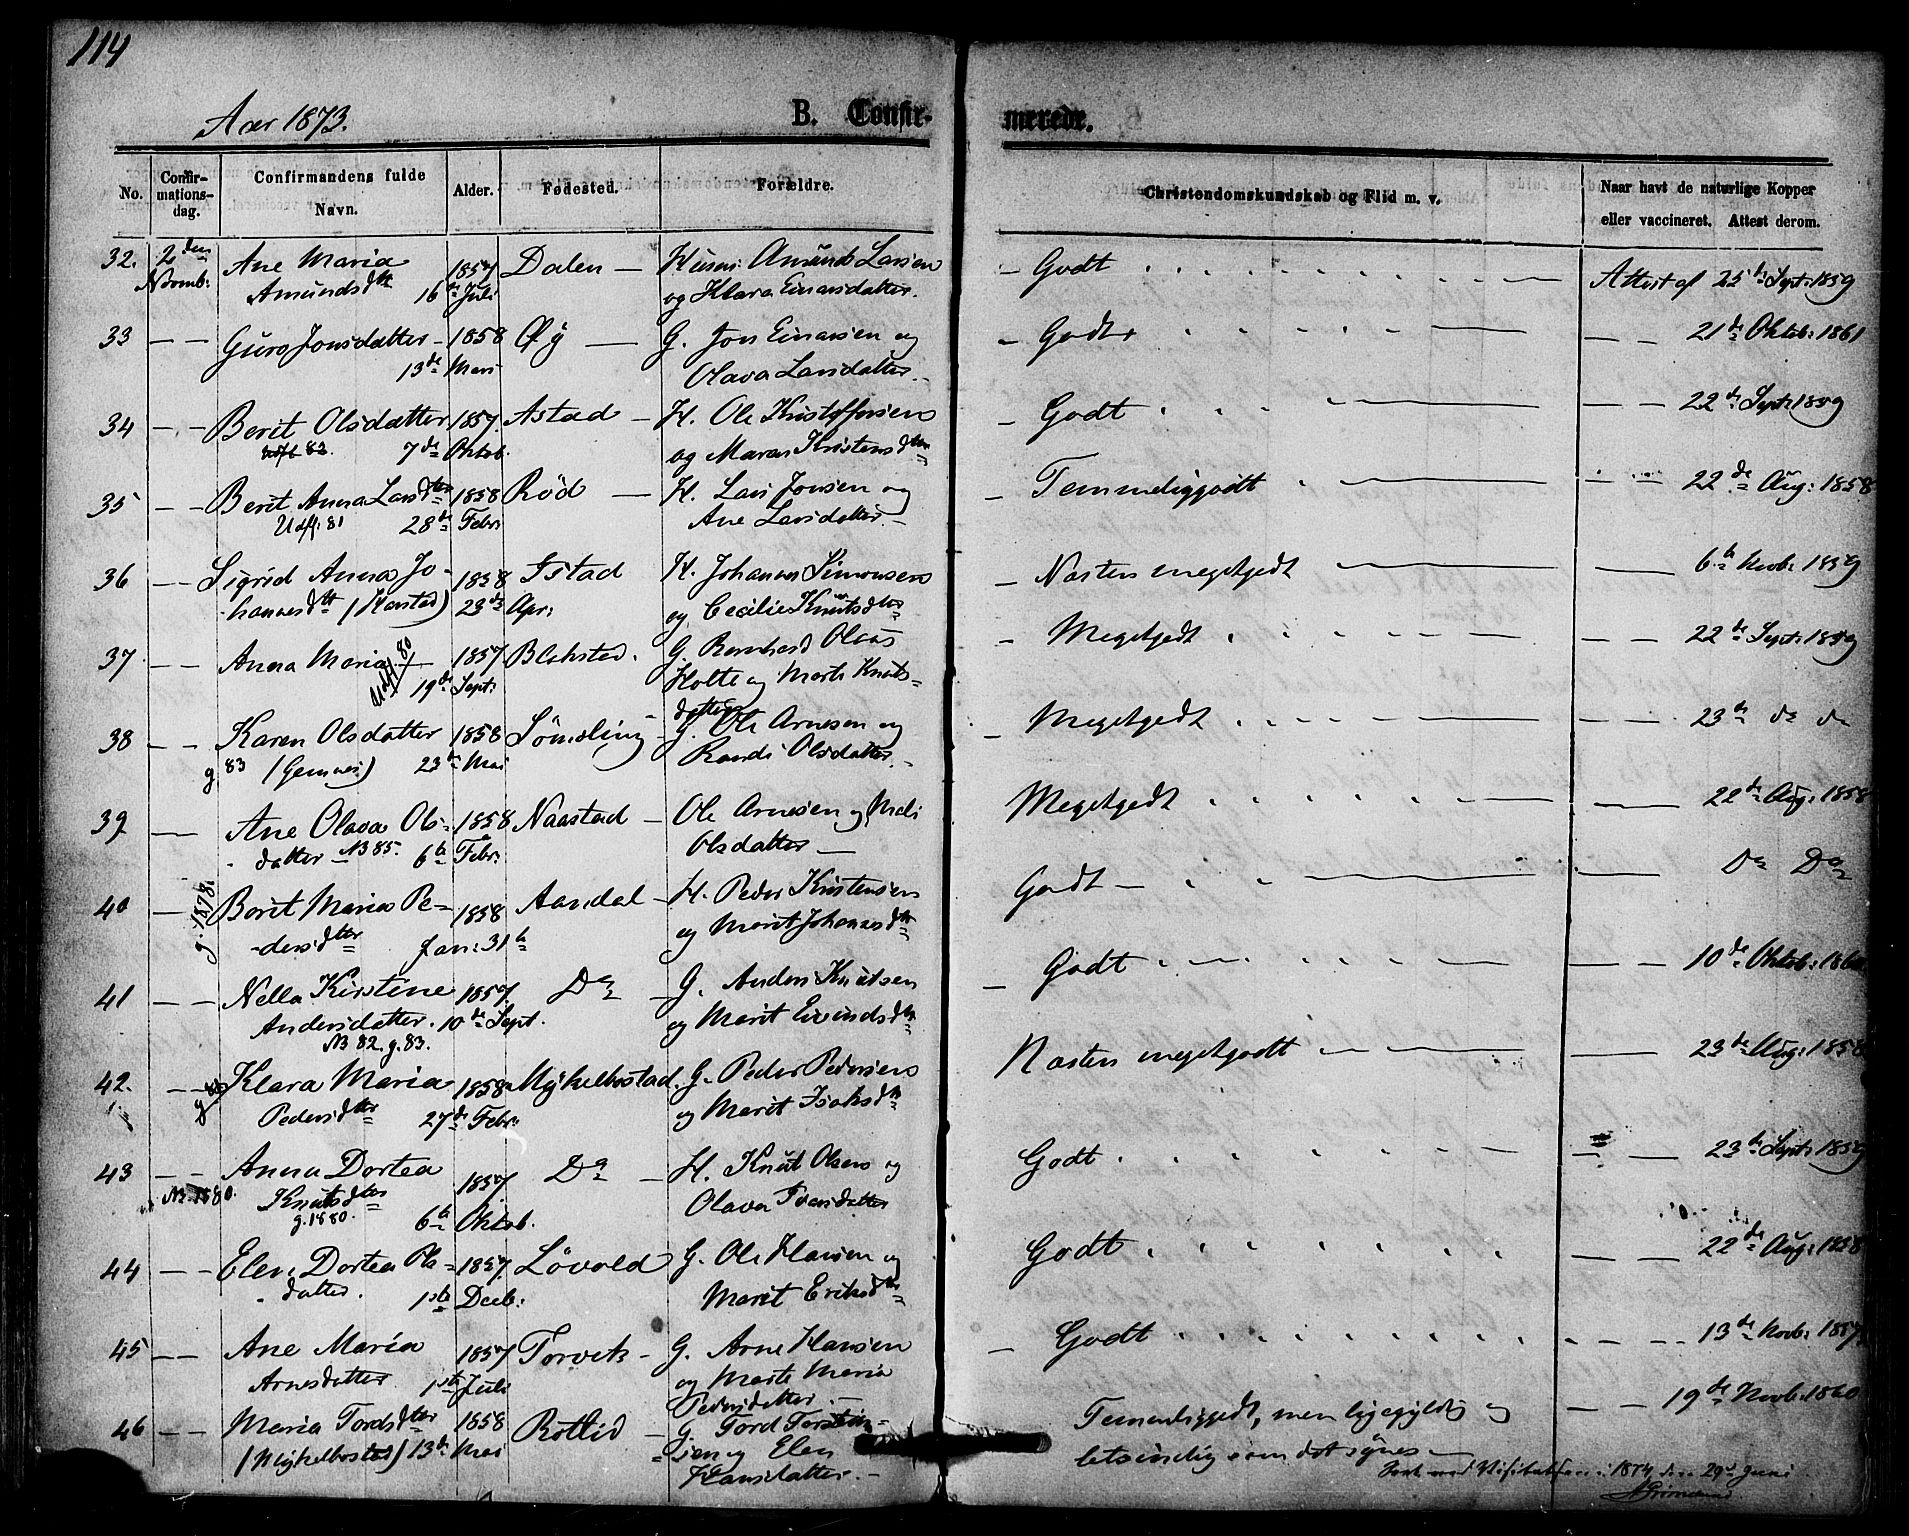 114
Aar 1873.
B. Confir-
merede.
No.
Confir-
mations-
dag.
Confirmandens fulde
Navn.
Alder.
Fødested.
Forældre.
Christendomskundskab og Flid m. v.
Naar havt de naturlige Kopper
eller vaccineret. Attest derom.
32. 2den Ane Maria 1857 Dalen — Husm: Amund Larsen — Godt Attest af 25de Sept: 1859
Novmb: Amundsdtr 16de Juli og Klara Einarsdatter.
33 — — Guro Jonsdatter – 1858 Øy — G. Jon Einarsen og — Godt — — 21de Oktob: 1861
13de Mars Olava Larsdatter. –
34 — — Berit Olsdatter 1857. Astad — H. Ole Kristoffersen — Godt — — 22de Sept: 1859
83. 7de Oktob. og Maren Kristensdtr
35 — — Berit Anna Larsdtr 1858 Rød — H. Lars Jonsen og — Temmeliggodt — — 22de Aug: 1858
Udfl: 81 28de Febr: Ane Larsdatter. –
36 — — Sigrid Anna Jo- 1858 Istad H. Johannes Simonsen — Næsten megetgodt — — 6te Novb: 1859
hannesdtr (Harstad) 23de Apr: og Cecilie Knutsdtr
37 — — Anna Maria — 1857 Blakstad. G. Bernhard Olaus — Megetgodt — — 22de Sept: 1859
Udfl. 80 19de Sept: Holte og Marte Knuts-
datter
38 — — Karen Olsdatter 1858 Sømsling – G. Ole Arnesen og — Megetgodt — — 23de do do
g 83 (Gemnæs) 23de Mai Randi Olsdatter. –
39 — — Ane Olava Ols- 1858 Naastad — Ole Arnesen og Mali Megetgodt — — 22de Aug: 1858
datter – NB 85. 6te Febr: Olsdatter —
40 — — Berit Maria Pe- 1858 Aandal – H. Peder Kristensen Godt — Do Do
g. 1878. dersdtr Jan: 31te og Marit Johannesdtr
41 — — Nella Kirstine 1857. Do — G. Anders Knutsen — Godt — — 10de Oktob:
Andersdatter. 10de Sept. og Marit Eivindsdtr
NB 82. g. 83.
42. — — Klara Maria 1858 Mykelbostad. G. Peder Pedersen Næsten megetgodt — — 23de Aug: 1858
Pedersdtr 27de Febr: og Marit Isaksdtr
43 — — Anna Dortea 1857 Do — H. Knut Olsen og Godt — — 23de Sept: 1859
Knutsdtr Olava Iversdatter
g. 1880. 6te Oktob.
44 — — Elen Dortea Ols- 1857. Løvold G. Ole Hansen og Godt — — 22de Aug: 1858
datter. 1ste Decb: Marit Eriksdtr
45 — — Ane Maria 1857 Torvik – G. Arne Hansen — Godt — — 13de Novb: 1857
Arnesdatter 1ste Juli og Marte Maria
Pedersdatter. —
46 — — Maria Tordsdtr 1858 Rottid — G. Tord Torstein- Temmeliggodt, men ligegyldig og — — 19de Novb: 1860
(Mykelbostad) 13de Mai sen og Elen letsindig som det synes —
Hansdatter. –
Visitatsen i 1874 den 29de Juni